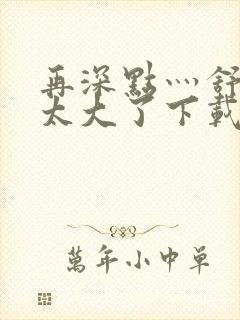 再深點灬舒
太大了下載
萬年小中單